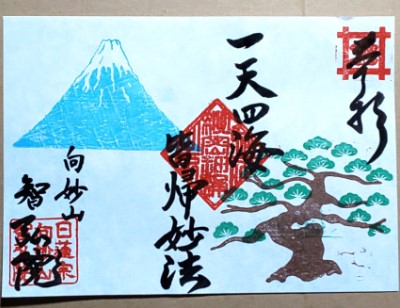 奉拝
一天四海
皆帰妙法
向妙山
智弘院
日蓮宗